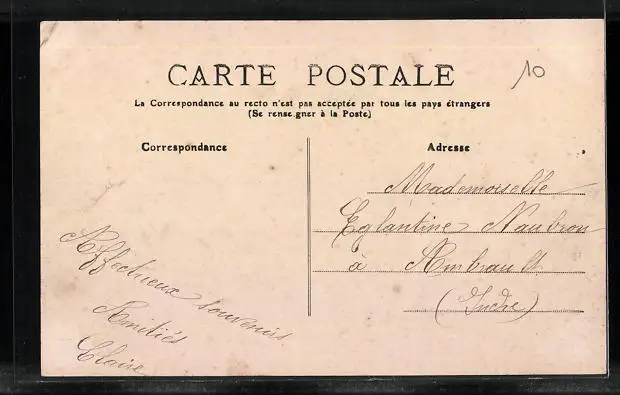 CARTE POSTALE
10
La Correspondance au recto n'est pas acceptée par tous les pays étrangers
(Se renseigner à la Poste)
Correspondance
Adresse
Affectueux souvenirs
Amitiés
Claire
Mademoiselle
Eglantine Naubron
à Ambrault
(Indre)